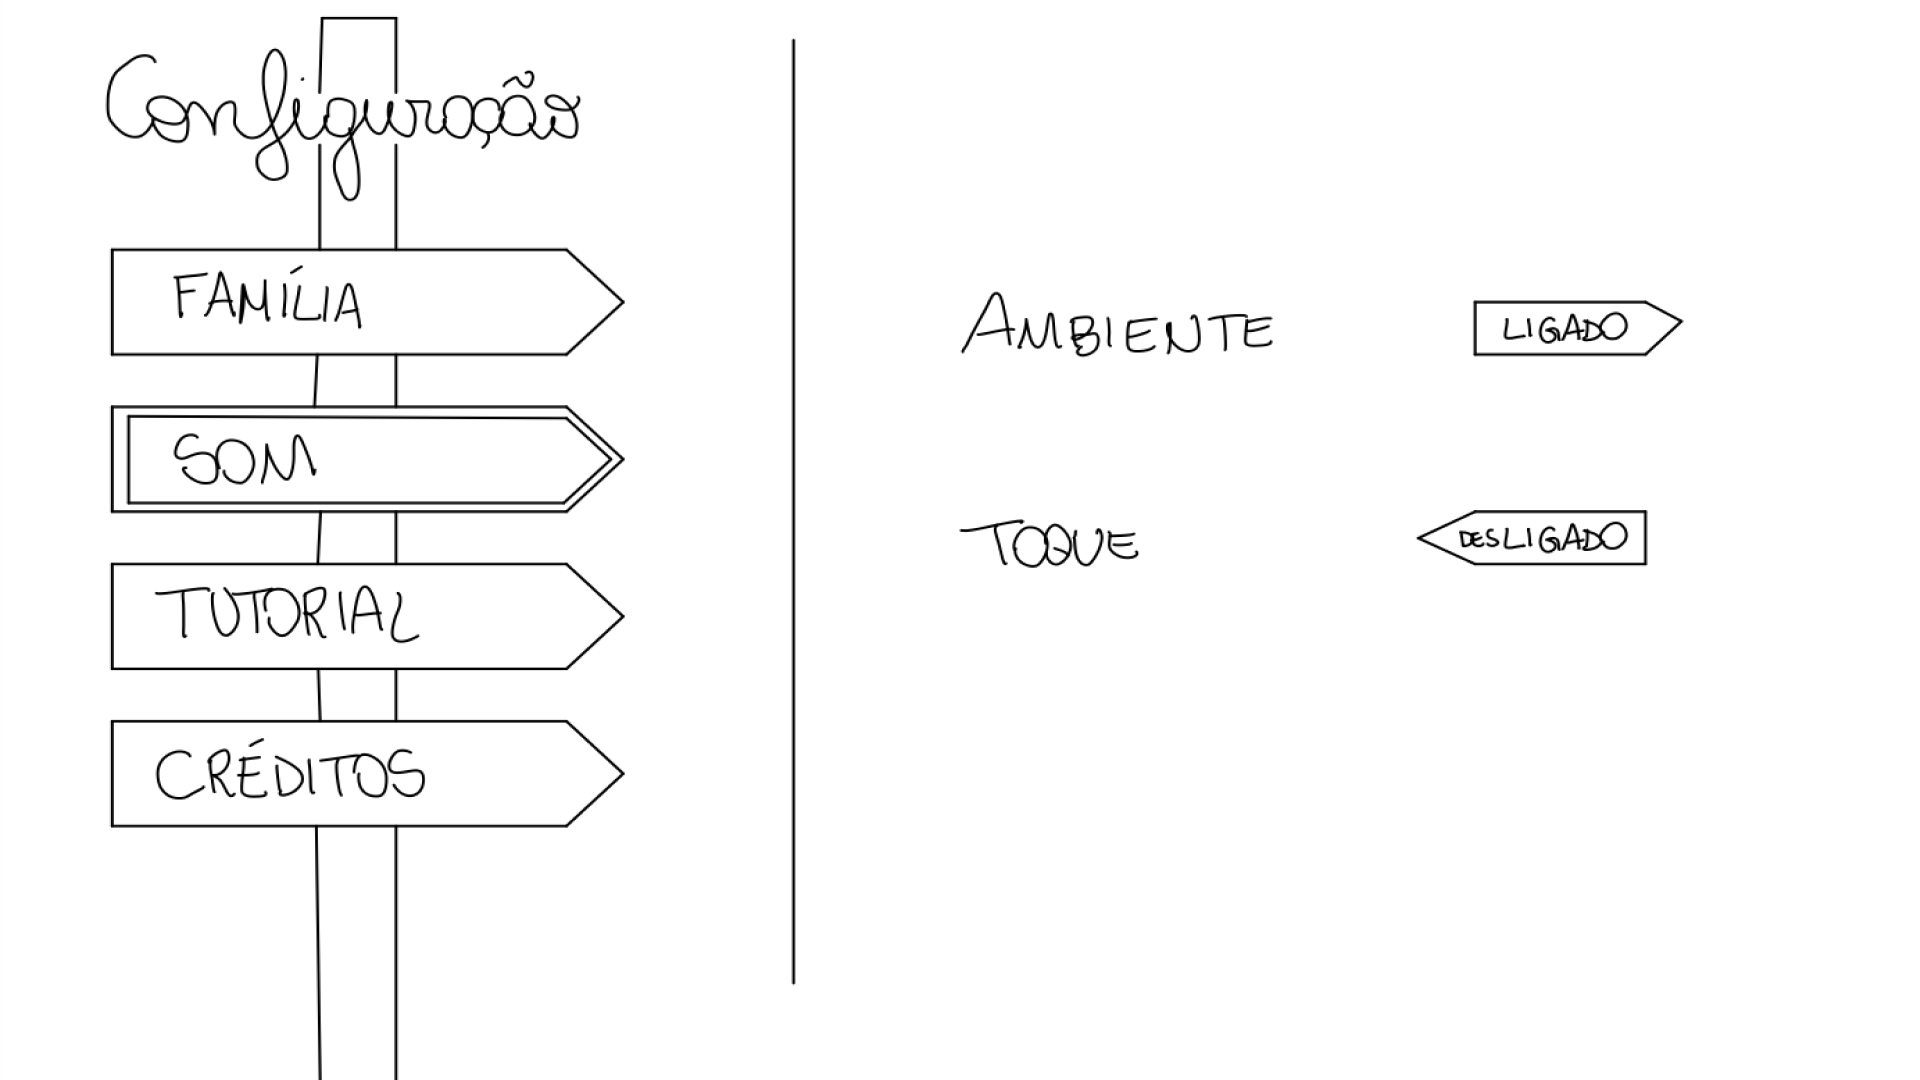 Configuração
FAMÍLIA
SOM
TUTORIAL
CRÉDITOS
AMBIENTE LIGADO
TOQUE DESLIGADO